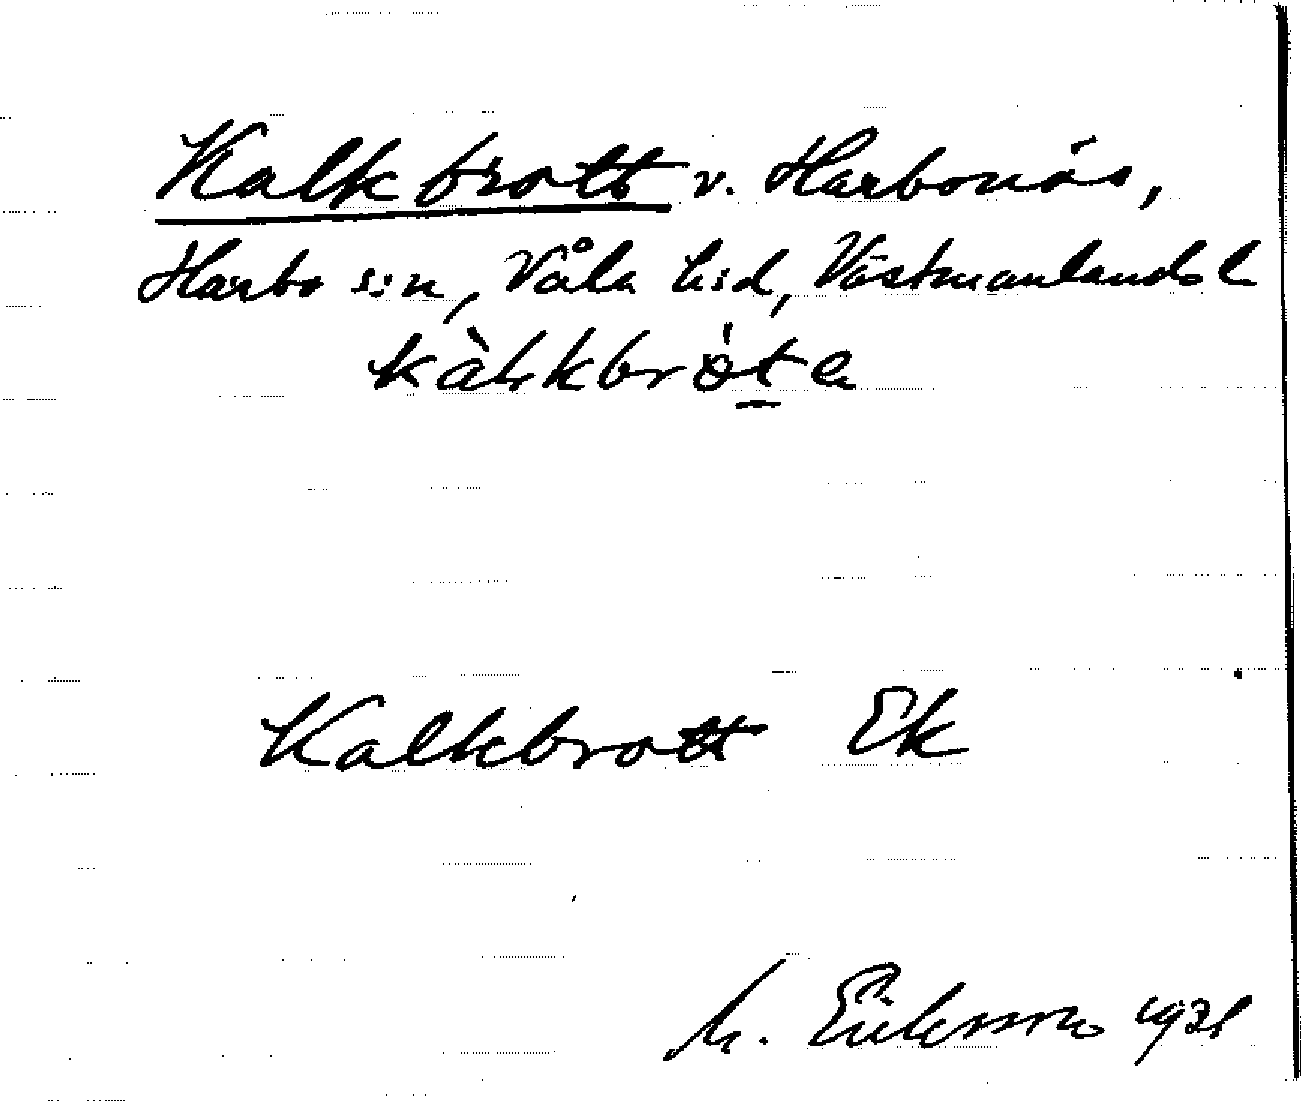 Kalkbrott v. Harbonäs,
Harbo s:n, Våla hd, Västmanlands l
kàlkbròta
Kalkbrott Ek
M. Eriksson 1921